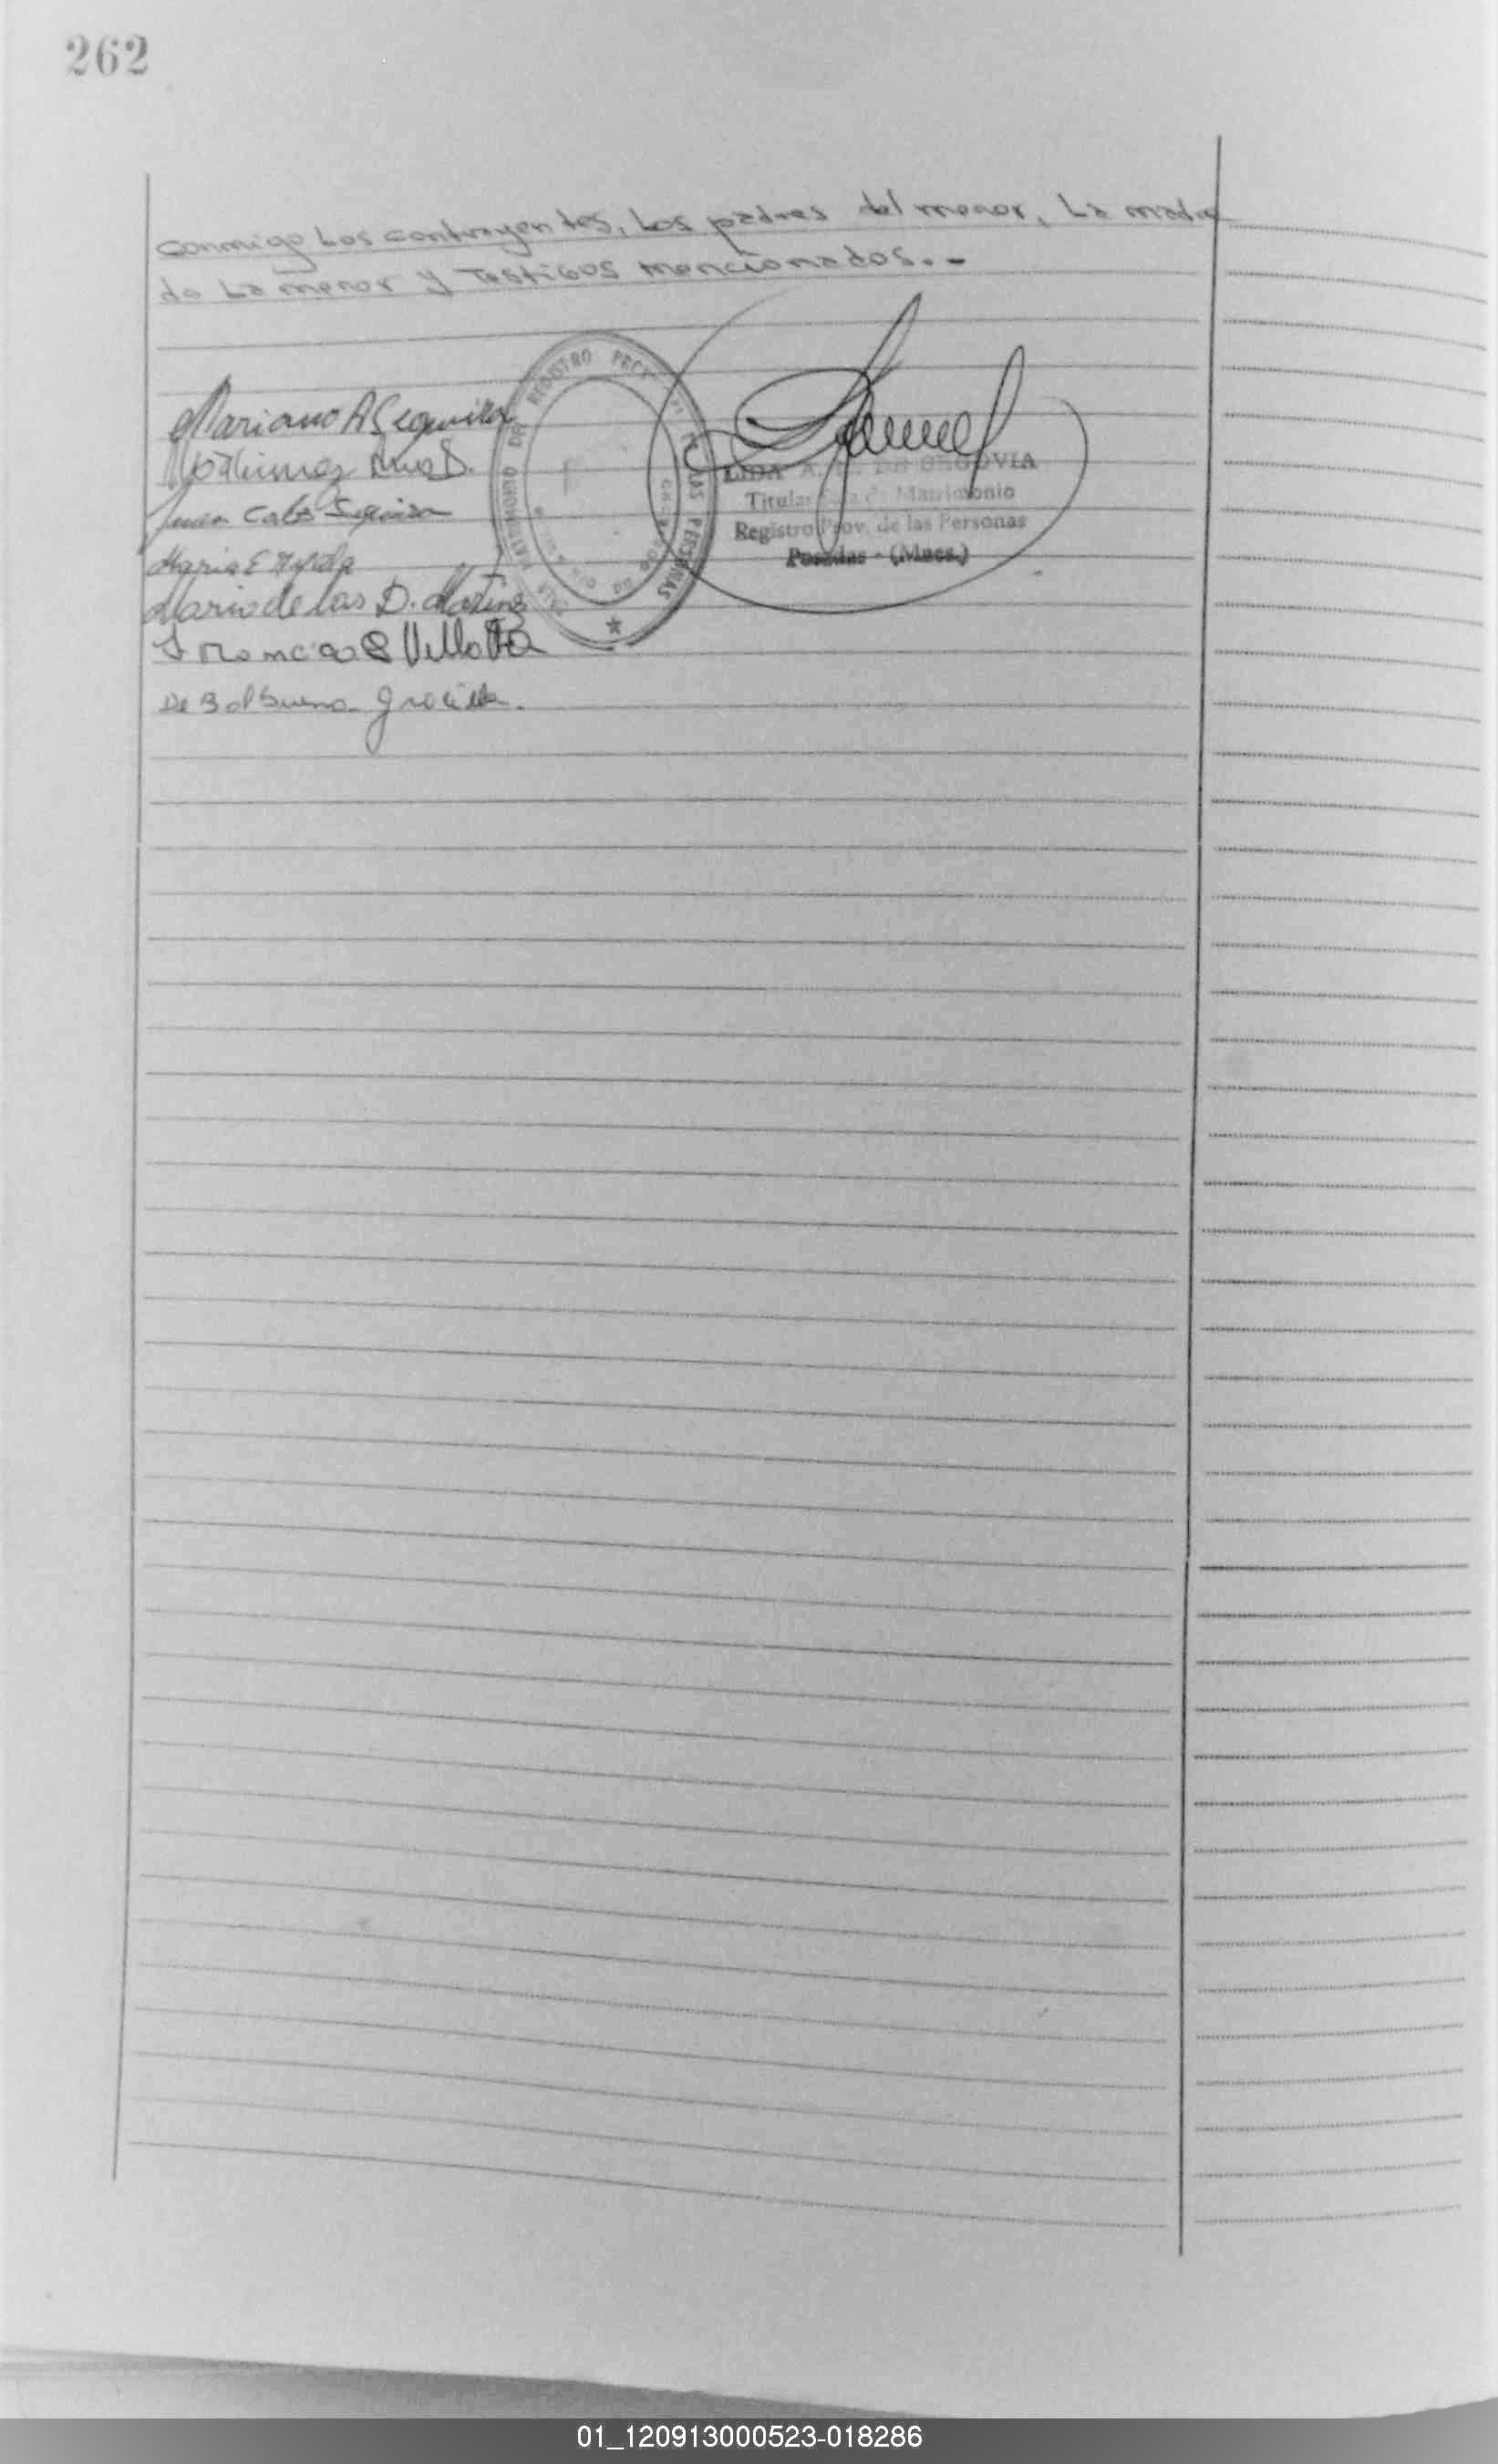 262
conmigo Los contrayentes, Los padres del menor, La madre
de La menor y Testigos mencionados.-
Mariano A Sequeira
Martinez D.
Juan Carlos Sequeira
Maria E
Maria de las D. Martinez
Francisco Villalba
De Balbuena Graciela.
REGISTRO PROV. DE LAS PERSONAS
LIDA A. DE SEGOVIA
Titular Sala de Matrimonio
Registro Prov. de las Personas
Posadas - (Mnes.)
01_120913000523-018286